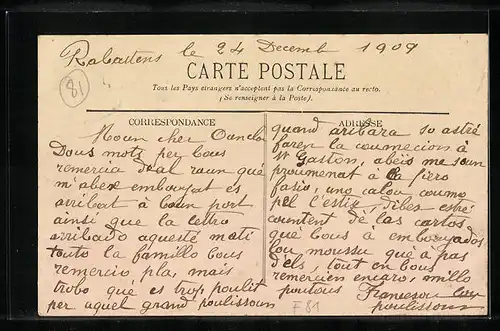 Rabastens le 24 Decemb 1909
81
CARTE POSTALE
Tous les Pays étrangers n'acceptent pas la Correspondance au recto.
(Se renseigner à la Poste).
CORRESPONDANCE
Moun cher Ouncle
Dous mots per bous
remercia dal raun qué
m'abex embouyat es
arribat à boun port
ainsi que la lettro
arribado aquesté mati
touto la famillo bous
remercio pla, mais
trobo qué es trop poulit
per aquel grand poulissoun
ADRESSE
quand aribara so astré
faren la coumecioun à
Mr Gastoun, abeis me soun
proumenat à la fiero
fasio, uno calou coumo
pel l'estiu, dibes estré
countent dé las cartos
qué bous à embouyados
lou moussu que à pas
d'els, tout en bous
remercien encaro, millo
poutous Francesou lou
poulissoun
F81